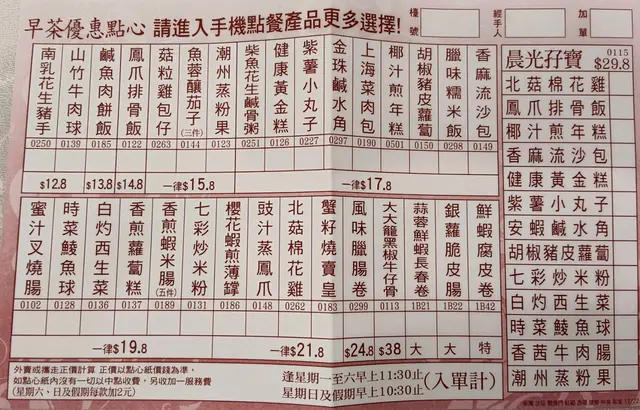 早茶優惠點心 請進入手機點餐產品更多選擇!
檯號
經手人
加單
南乳花生豬手
山竹牛肉球
鹹魚肉餅飯
鳳爪排骨飯
菇粒雞包仔
魚蓉釀茄子(三件)
潮州蒸粉果
柴魚花生鹹骨粥
健康黃金糕
紫薯小丸子
金珠鹹水角
上海菜肉包
椰汁煎年糕
胡椒豬皮蘿蔔
臘味糯米飯
香麻流沙包
0250 0139 0185 0122 0263 0144 0123 0251 0126 0227 0297 0190 0501 0150 0298 0149
$12.8 $13.8 $14.8 一律$15.8 一律$17.8
蜜汁叉燒腸
時菜鯪魚球
白灼西生菜
香煎蘿蔔糕
香煎蝦米腸(五件)
七彩炒米粉
櫻花蝦煎薄罉
豉汁蒸鳳爪
北菇棉花雞
蟹籽燒賣皇
風味腊腸卷
大大籠黑椒牛仔骨
蒜蓉鮮蝦長春卷
銀蘿脆皮腸
鮮蝦腐皮卷
0102 0128 0136 0137 0189 0131 0186 0148 0262 0183 0299 0113 1B21 1B22 1B42
一律$19.8 一律$21.8 $24.8 $38 大 大 特
晨光孖寶 0115 $29.8
北菇棉花雞
鳳爪排骨飯
椰汁煎年糕
香麻流沙包
健康黃金糕
紫薯小丸子
安蝦鹹水角
胡椒豬皮蘿蔔
七彩炒米粉
白灼西生菜
時菜鯪魚球
香茜牛肉腸
潮州蒸粉果
外賣或攜走正價計算 正價以點心紙價錢為準,
如點心紙內沒有一切以中點收費,另收加一服務費
(星期六、日及假期每款加2元)
逢星期一至六早上11:30止
星期日及假期早上10:30止
(入單計)